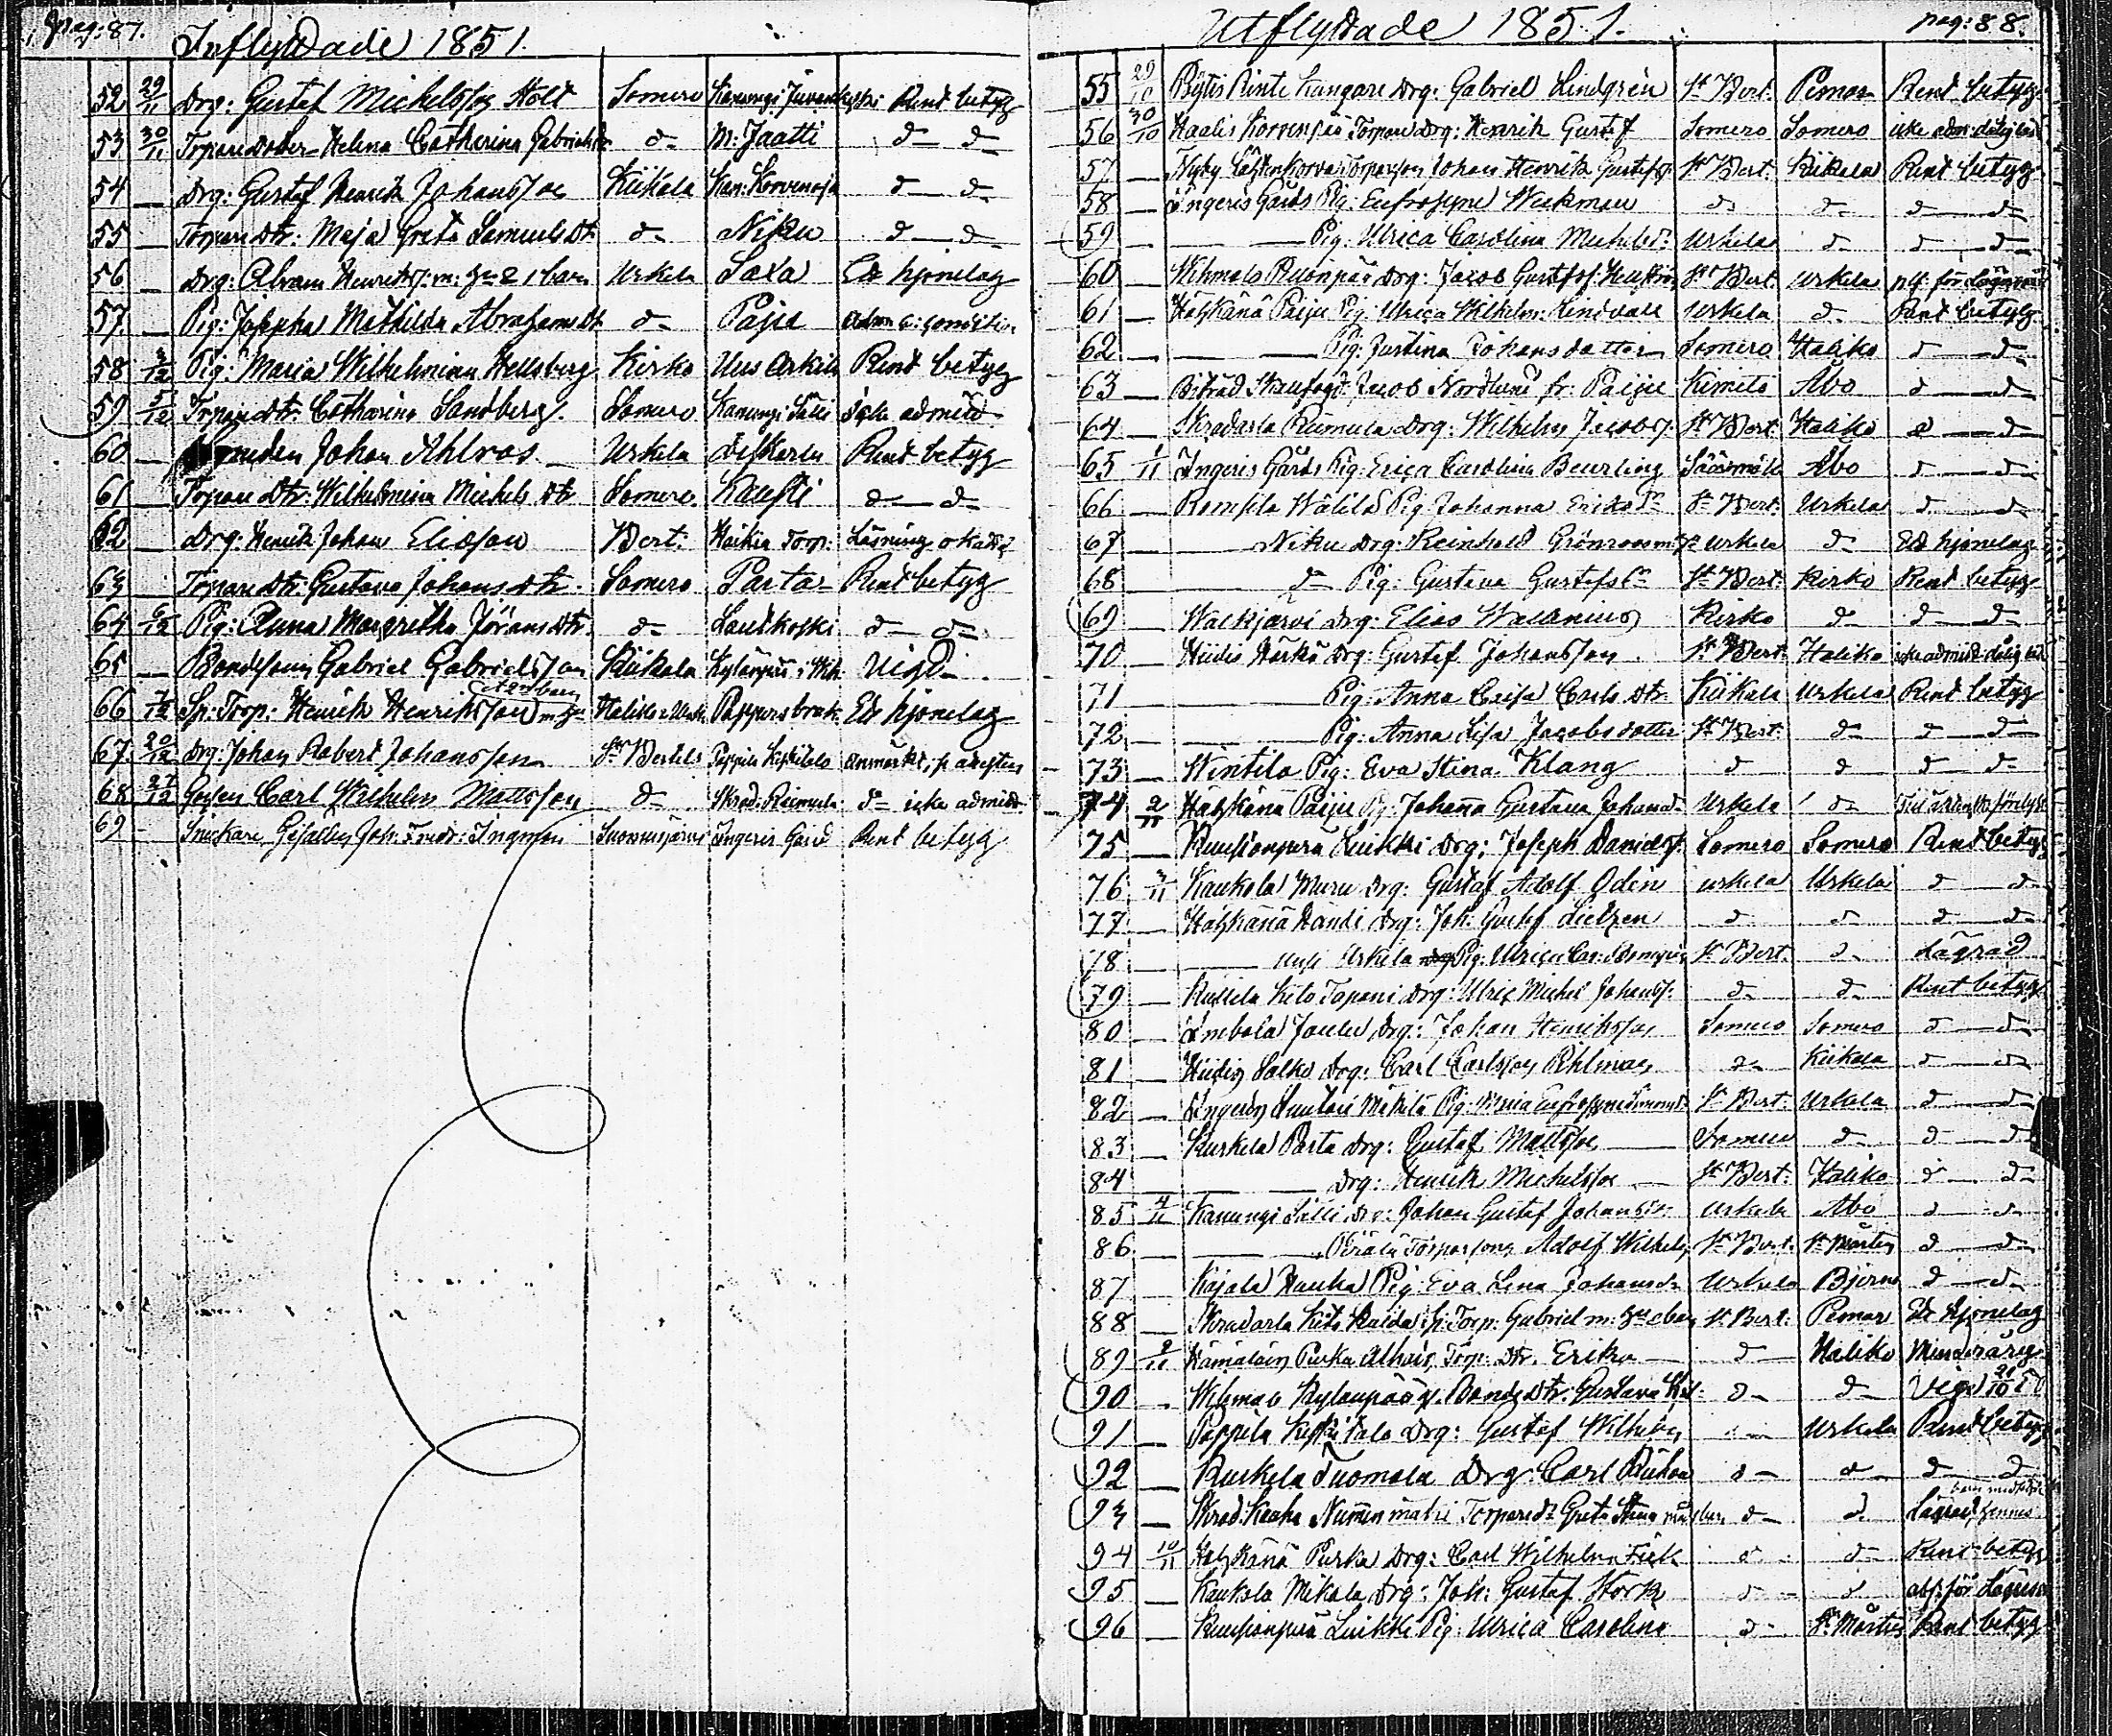 pag: 87.
Inflyttade 1851.
52 29/11 Drg: Gustaf Michelsson Holt Somero Kanungi Juvankoski Rent betyg
53 30/11 Torparedotter Helena Catharina Gabrielsdr d- M: Jaatti d- d-
54 — Drg: Gustaf Henrik Johansson Kiikala Kan: Korvenoja d- d-
55 — Torparedtr: Maja Greta Samuelsdtr d- Niku d- d-
56 — Drg: Abram Henrikss: m: hu & 1 barn Urkela Saxa Et hjonelag
57 — Pig: Josepha Mathilda Abrahamsdtr d- Pajia
58 3/12 Pig: Maria Wilhelmina Hellsberg Kirko Uus Arkila Rent betyg
59 5/12 Torparedtr. Catharina Sandberg. Somero Kanungi Sälli icke admitt.
60 — Johan Ahlroos Urkela Rent betyg
61 — Torpare Dtr: Wilhelmina Michelsdtr Somero Kausti d- d-
62 — Drg: Henrik Johan Eliasson Bert: Torp: Läsning okänd
63 — Torparedtr: Gustava Johansdtr. Somero Parta Rent betyg
64 6/12 Pig: Anna Margretha Jöransdtr. d- Lautkoski d- d-
65 — Bondesonen Gabriel Gabrielsson Kiikala Kylänpää i Wih. Vigd
66 7/12 Sp: Torp: Henrik Henriksson m hu et 2ne barn Haliko Et hjonelag
67 20/12 Drg: Johan Robert Johansson St Bertils Pappila Keskitalo
68 27/12 Gossen Carl Wilhelm Mattsson d- Skrad. Reimula d- icke admitt.
69 - Snickare Gesällen Joh: Fredr: Ingman Suomusjärvi Ingeris Gård Rent betyg
Utflyttade 1851.
pag: 88.
55 29/10 Pöytis Rinte Kangare Drg: Gabriel Lindgren St Bert. Pemar Rent betyg
56 30/10 Haalis Korvenpää Torpare Drg: Henrik Gustaf Somero Somero icke adm:
57 — Torparson Johan Henrik Gustafss: St Bert. Kiikala Rent betyg
58 — Ingeris Gårds Pig: Eufrosyne Weckman d- d- d- d-
59 — — Pig: Ulrica Carolina Michelsdr: Urkela d- d- d-
60 — Wihmalo Ruonpää Drg: Jacob Gustafss: St Bert. Urkela
61 — Hätzkänä Paijie Pig: Ulrica Wilhelm: Lindvall Urkela d- Rent betyg
62 — — Pig: Justina Johansdotter Somero Haliko d- d-
63 — Jacob Nordlund fr. Paijie Kimito Åbo d- d-
64 — Skradarla Reimula Drg: Wilhelm Jacobs: St Bert. Haliko d- d-
65 1/11 Ingeris Gårds Pig: Erica Carolina Beurling Sääxmäki Åbo d- d-
66 — Rompsila Wälilä Pig: Johanna Eriksdr St Bert. Urkela d- d-
67 — Niku Drg: Reinhold Grönroos m: hu Urkela d- Et hjonelag
68 — d- Pig: Gustava Gustafsdr St Bert. Kirko Rent betyg
69 — Walkjärvi Drg: Elias Wallenius Kirko d- d- d-
70 — Hiidis Härkö Drg: Gustaf Johansson St Bert. Haliko
71 — Pig: Anna Caisa Carls Dtr: Kiikala Urkela Rent betyg
72 — — Pig: Anna Lisa Jacobsdotter St Bert. d- d- d-
73 — Wintila Pig: Eva Stina Klang d d d d-
74 2/11 Hätzkänä Paijie Pig: Johanna Gustava Johansd. Urkela d-
75 — Ruusionperä Luikki Drg: Joseph Daniels: Somero Somero Rent betyg
76 3/11 Kaukola Muru Drg: Gustaf Adolf Oden Urkela Urkela d- d-
77 — Hätzkänä Handi Drg: Joh: Gustaf Lietzen d d- d- d-
78 — Uusi Urkila Pig: Ulrica Car: St Bert. d- Lägrad
79 — Rullila Kito Tapani Drg: Ulric Michel Johanss: d- d- Rent betyg
80 — Imbola Jaulu Drg: Johan Henriksson Somero Somero d- d-
81 — Hiidis Salko Drg: Carl Carlsson Rihlman d- Kiikala d- d-
82 — Ingeris Mäkilä Pig: Maria St Bert. Urkela d- d-
83 — Kurkela Parta Drg: Gustaf Mattsson Somero d- d- d-
84 — Drg: Henrik Michelsson St Bert: Haliko d- d-
85 4/11 Kanungi Sälli Drg: Johan Gustaf Johanss: Urkela Åbo d- d-
86 — Perälä Torparson Adolf Wilhelm St Bert. St Mårtens d- d-
87 — Kajala Hauka Pig: Eva Lena Johansdr Urkela Bjerno d- d-
88 — Skradarla Kito Sp: Torp: Gabriel m: hu & barn St Bert. Pemar Et hjonelag
89 9/11 Purka Torp: Dtr. Erika d- Haliko Minderårig
90 — Wihmalo Kylänpää Bonde Dtr: Gustava d- d- Vigd 21/10 50
91 — Pappila Keskitalo Drg: Gustaf Wilhelm d- Urkela Rent betyg
92 — Kurkela Tuomola Drg. Carl d- d- d- d-
93 — Skrad: Nummenmäki Torparedr Greta Stina d- d- Lägrad
94 10/11 Hätzkänä Purka Drg: Carl Wilhelm Fick d- d- Rent betyg
95 — Kaukola Mikola Drg: Joh: Gustaf Stork d- d-
96 — Ruusionperä Luikki Pig: Ulrica Carolina d- St Mårtens Rent betyg